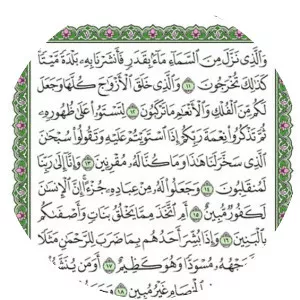 وَٱلَّذِى نَزَّلَ مِنَ ٱلسَّمَآءِ مَآءًۢ بِقَدَرٍ فَأَنشَرْنَا بِهِۦ بَلْدَةً مَّيْتًا
كَذَٰلِكَ تُخْرَجُونَ ١١ وَٱلَّذِى خَلَقَ ٱلْأَزْوَٰجَ كُلَّهَا وَجَعَلَ
لَكُم مِّنَ ٱلْفُلْكِ وَٱلْأَنْعَٰمِ مَا تَرْكَبُونَ ١٢ لِتَسْتَوُۥا۟ عَلَىٰ ظُهُورِهِۦ
ثُمَّ تَذْكُرُوا۟ نِعْمَةَ رَبِّكُمْ إِذَا ٱسْتَوَيْتُمْ عَلَيْهِ وَتَقُولُوا۟ سُبْحَٰنَ
ٱلَّذِى سَخَّرَ لَنَا هَٰذَا وَمَا كُنَّا لَهُۥ مُقْرِنِينَ ١٣ وَإِنَّآ إِلَىٰ رَبِّنَا
لَمُنقَلِبُونَ ١٤ وَجَعَلُوا۟ لَهُۥ مِنْ عِبَادِهِۦ جُزْءًا إِنَّ ٱلْإِنسَٰنَ
لَكَفُورٌ مُّبِينٌ ١٥ أَمِ ٱتَّخَذَ مِمَّا يَخْلُقُ بَنَاتٍ وَأَصْفَىٰكُم
بِٱلْبَنِينَ ١٦ وَإِذَا بُشِّرَ أَحَدُهُم بِمَا ضَرَبَ لِلرَّحْمَٰنِ مَثَلًا
وَجْهُهُۥ مُسْوَدًّا وَهُوَ كَظِيمٌ ١٧ أَوَمَن يُنَشَّؤُا۟
غَيْرُ مُبِينٍ ١٨